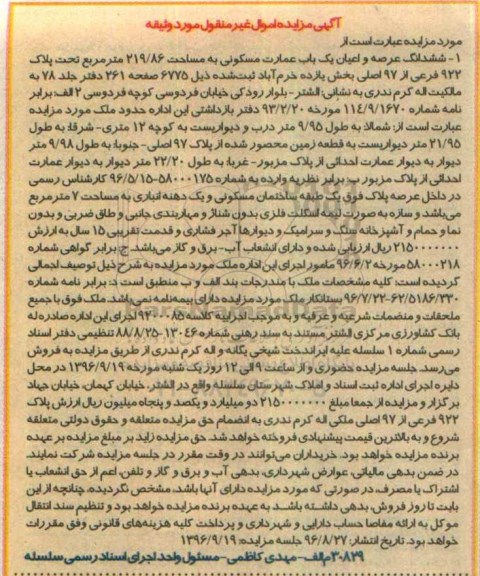 آگهی مزایده اموال غیر منقول مورد وثیقه
مورد مزایده عبارت است از
۱- ششدانگ عرصه و اعیان یک باب عمارت مسکونی به مساحت ۲۱۹/۸۶ مترمربع تحت پلاک
۹۲۲ فرعی از ۹۷ اصلی بخش یازده خرم‌آباد ثبت‌شده ذیل ۶۷۷۵ صفحه ۲۶۱ دفتر جلد ۷۸ به
مالکیت اله کرم ندری به نشانی: الشتر- بلوار رودکی خیابان فردوسی کوچه فردوسی ۲ الف: برابر
نامه شماره ۱۱۴/۹/۱۶۷۰ مورخه ۹۳/۲/۲۰ دفتر بازداشتی این اداره حدود ملک مورد مزایده
عبارت است از: شمالا: به طول ۹/۹۵ متر درب و دیواریست به کوچه ۱۲ متری- شرقا: به طول
۲۱/۹۵ متر دیواریست به قطعه زمین محصور شده از پلاک ۹۷ اصلی- جنوبا: به طول ۹/۹۸ متر
دیوار به دیوار عمارت احداثی از پلاک مزبور- غربا: به طول ۲۲/۲۰ متر دیوار به دیوار عمارت
احداثی از پلاک مزبور ب: برابر نظریه وارده به شماره ۵۸۰۰۰۱۷۵-۹۶/۵/۱۵ کارشناس رسمی
در داخل عرصه پلاک فوق یک طبقه ساختمان مسکونی و یک دهنه انباری به مساحت ۷ مترمربع
می‌باشد و سازه به صورت نیمه اسکلت فلزی بدون شناژ و مهاربندی جانبی و طاق ضربی و بدون
نما و حمام و آشپزخانه سنگ و سرامیک و دیوارها آجر فشاری و قدمت تقریبی ۱۵ سال به ارزش
۲۱۵۰۰۰۰۰۰۰ ریال ارزیابی شده و دارای انشعاب آب- برق و گاز می‌باشد. ج: برابر گواهی شماره
۵۸۰۰۰۲۱۸ مورخه ۹۶/۶/۲ مامور اجرای این اداره ملک مورد مزایده به شرح ذیل توصیف اجمالی
گردیده است: کلیه مشخصات ملک با مندرجات بند الف و ب منطبق است د: برابر نامه شماره
۶۲/۵۱۸۶/۳۳۰-۹۶/۷/۲۲ بستانکار ملک مورد مزایده دارای بیمه‌نامه نمی‌باشد. ملک فوق با جمیع
ملحقات و منضمات شرعیه و عرفیه و به موجب اجراییه کلاسه ۹۴۰۰۰۸۵ اجرای این اداره صادره له
بانک کشاورزی مرکزی الشتر مستند به سند رهنی شماره ۱۳۰۴۶-۸۸/۸/۲۵ تنظیمی دفتر اسناد
رسمی شماره ۱ سلسله علیه ایراندخت شیخی یگانه و اله کرم ندری از طریق مزایده به فروش
می‌رسد. جلسه مزایده حضوری و از ساعت ۹ الی ۱۲ روز یک شنبه مورخه ۱۳۹۶/۹/۱۹ در محل
دایره اجرای اداره ثبت اسناد و املاک شهرستان سلسله واقع در الشتر، خیابان کیهان، خیابان جهاد
برگزار و مزایده از جمعا مبلغ ۲۱۵۰۰۰۰۰۰۰ دو میلیارد و یکصد و پنجاه میلیون ریال ارزش پلاک
۹۲۲ فرعی از ۹۷ اصلی ملکی اله کرم ندری به انضمام حق مزایده متعلقه و حقوق دولتی متعلقه
شروع و به بالاترین قیمت پیشنهادی فروخته خواهد شد. حق مزایده زاید بر مبلغ مزایده بر عهده
برنده مزایده خواهد بود. خریداران می‌توانند در وقت مقرر در جلسه مزایده شرکت نمایند.
در ضمن بدهی مالیاتی، عوارض شهرداری، بدهی آب و برق و گاز و تلفن، اعم از حق انشعاب یا
اشتراک یا مصرف در صورتی که مورد مزایده دارای آنها باشد، مشخص نگردیده، چنانچه از این
بابت تا روز فروش، بدهی داشته باشد به عهده برنده مزایده خواهد بود و تنظیم سند انتقال
موکل به ارائه مفاصا حساب دارایی و شهرداری و پرداخت کلیه هزینه‌های قانونی وفق مقررات
خواهد بود. تاریخ انتشار: ۹۶/۸/۲۷ جلسه مزایده: ۱۳۹۶/۹/۱۹
۳۰۸۲۹م‌الف- مهدی کاظمی- مسئول واحد اجرای اسناد رسمی سلسله